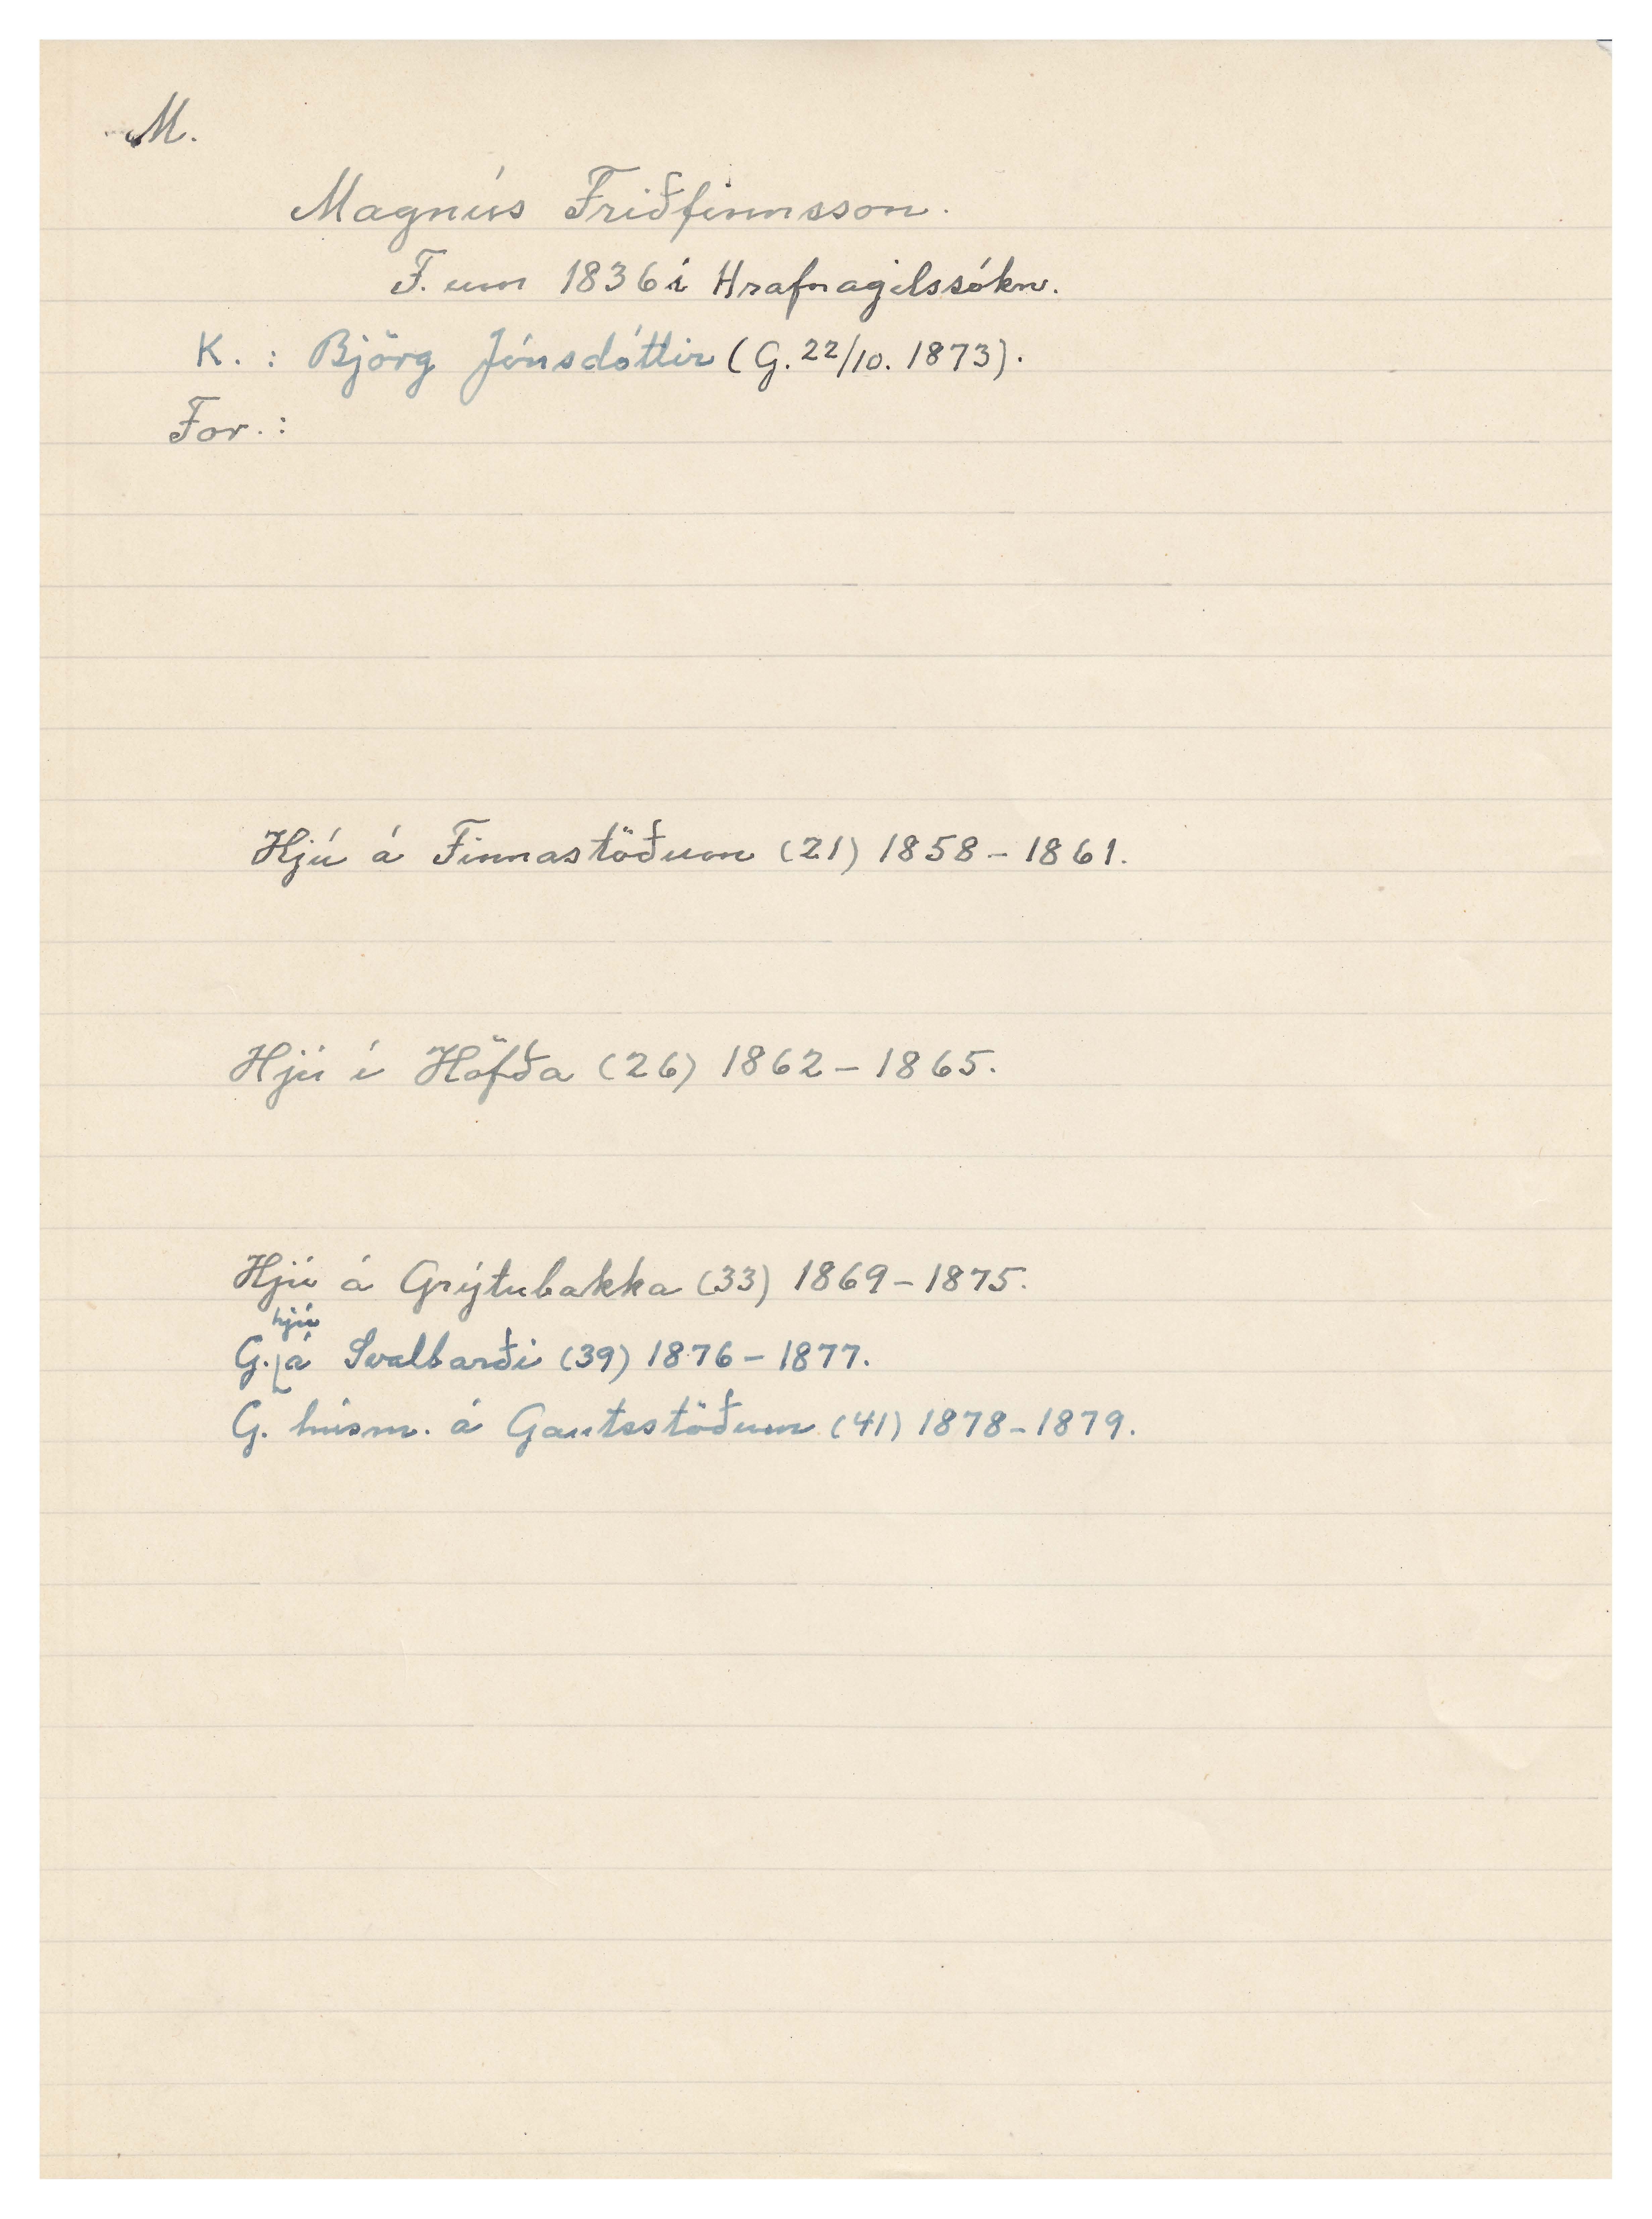 M.
Magnús Friðfinnsson.
F. um 1836 í Hrafnagilssókn.
K. : Björg Jónsdóttir (G. 22/10. 1873).
For. :
Hjú á Finnastöðum (21) 1858 - 1861.
Hjú í Höfða (26) 1862 - 1865.
Hjú á Grýtubakka (33) 1869 - 1875.
G. hjú á Svalbarði (39) 1876 - 1877.
G. húsm. á Gautsstöðum (41) 1878 - 1879.